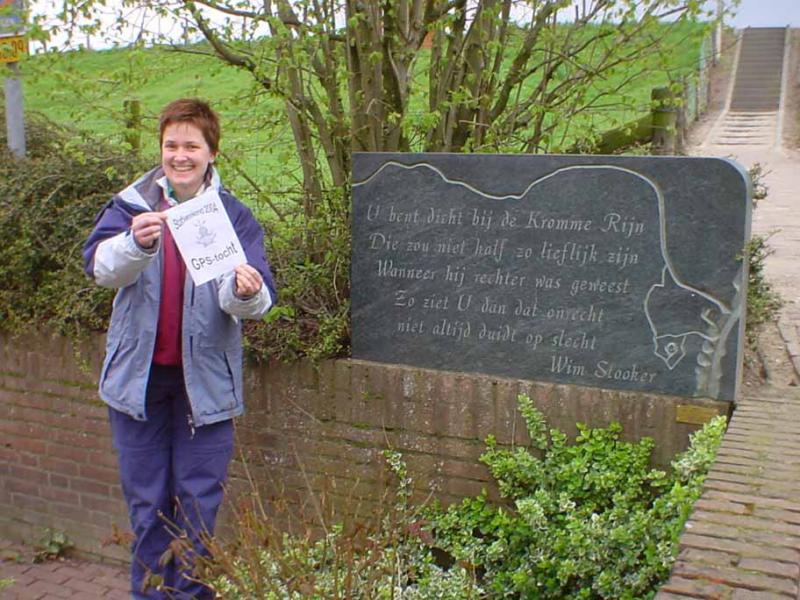 Scharrelrond 2004
GPS-tocht
U bent dicht bij de Kromme Rijn
Die zou niet half zo lieflijk zijn
Wanneer hij rechter was geweest
Zo ziet U dan dat onrecht
niet altijd duidt op slecht
Wim Stooker